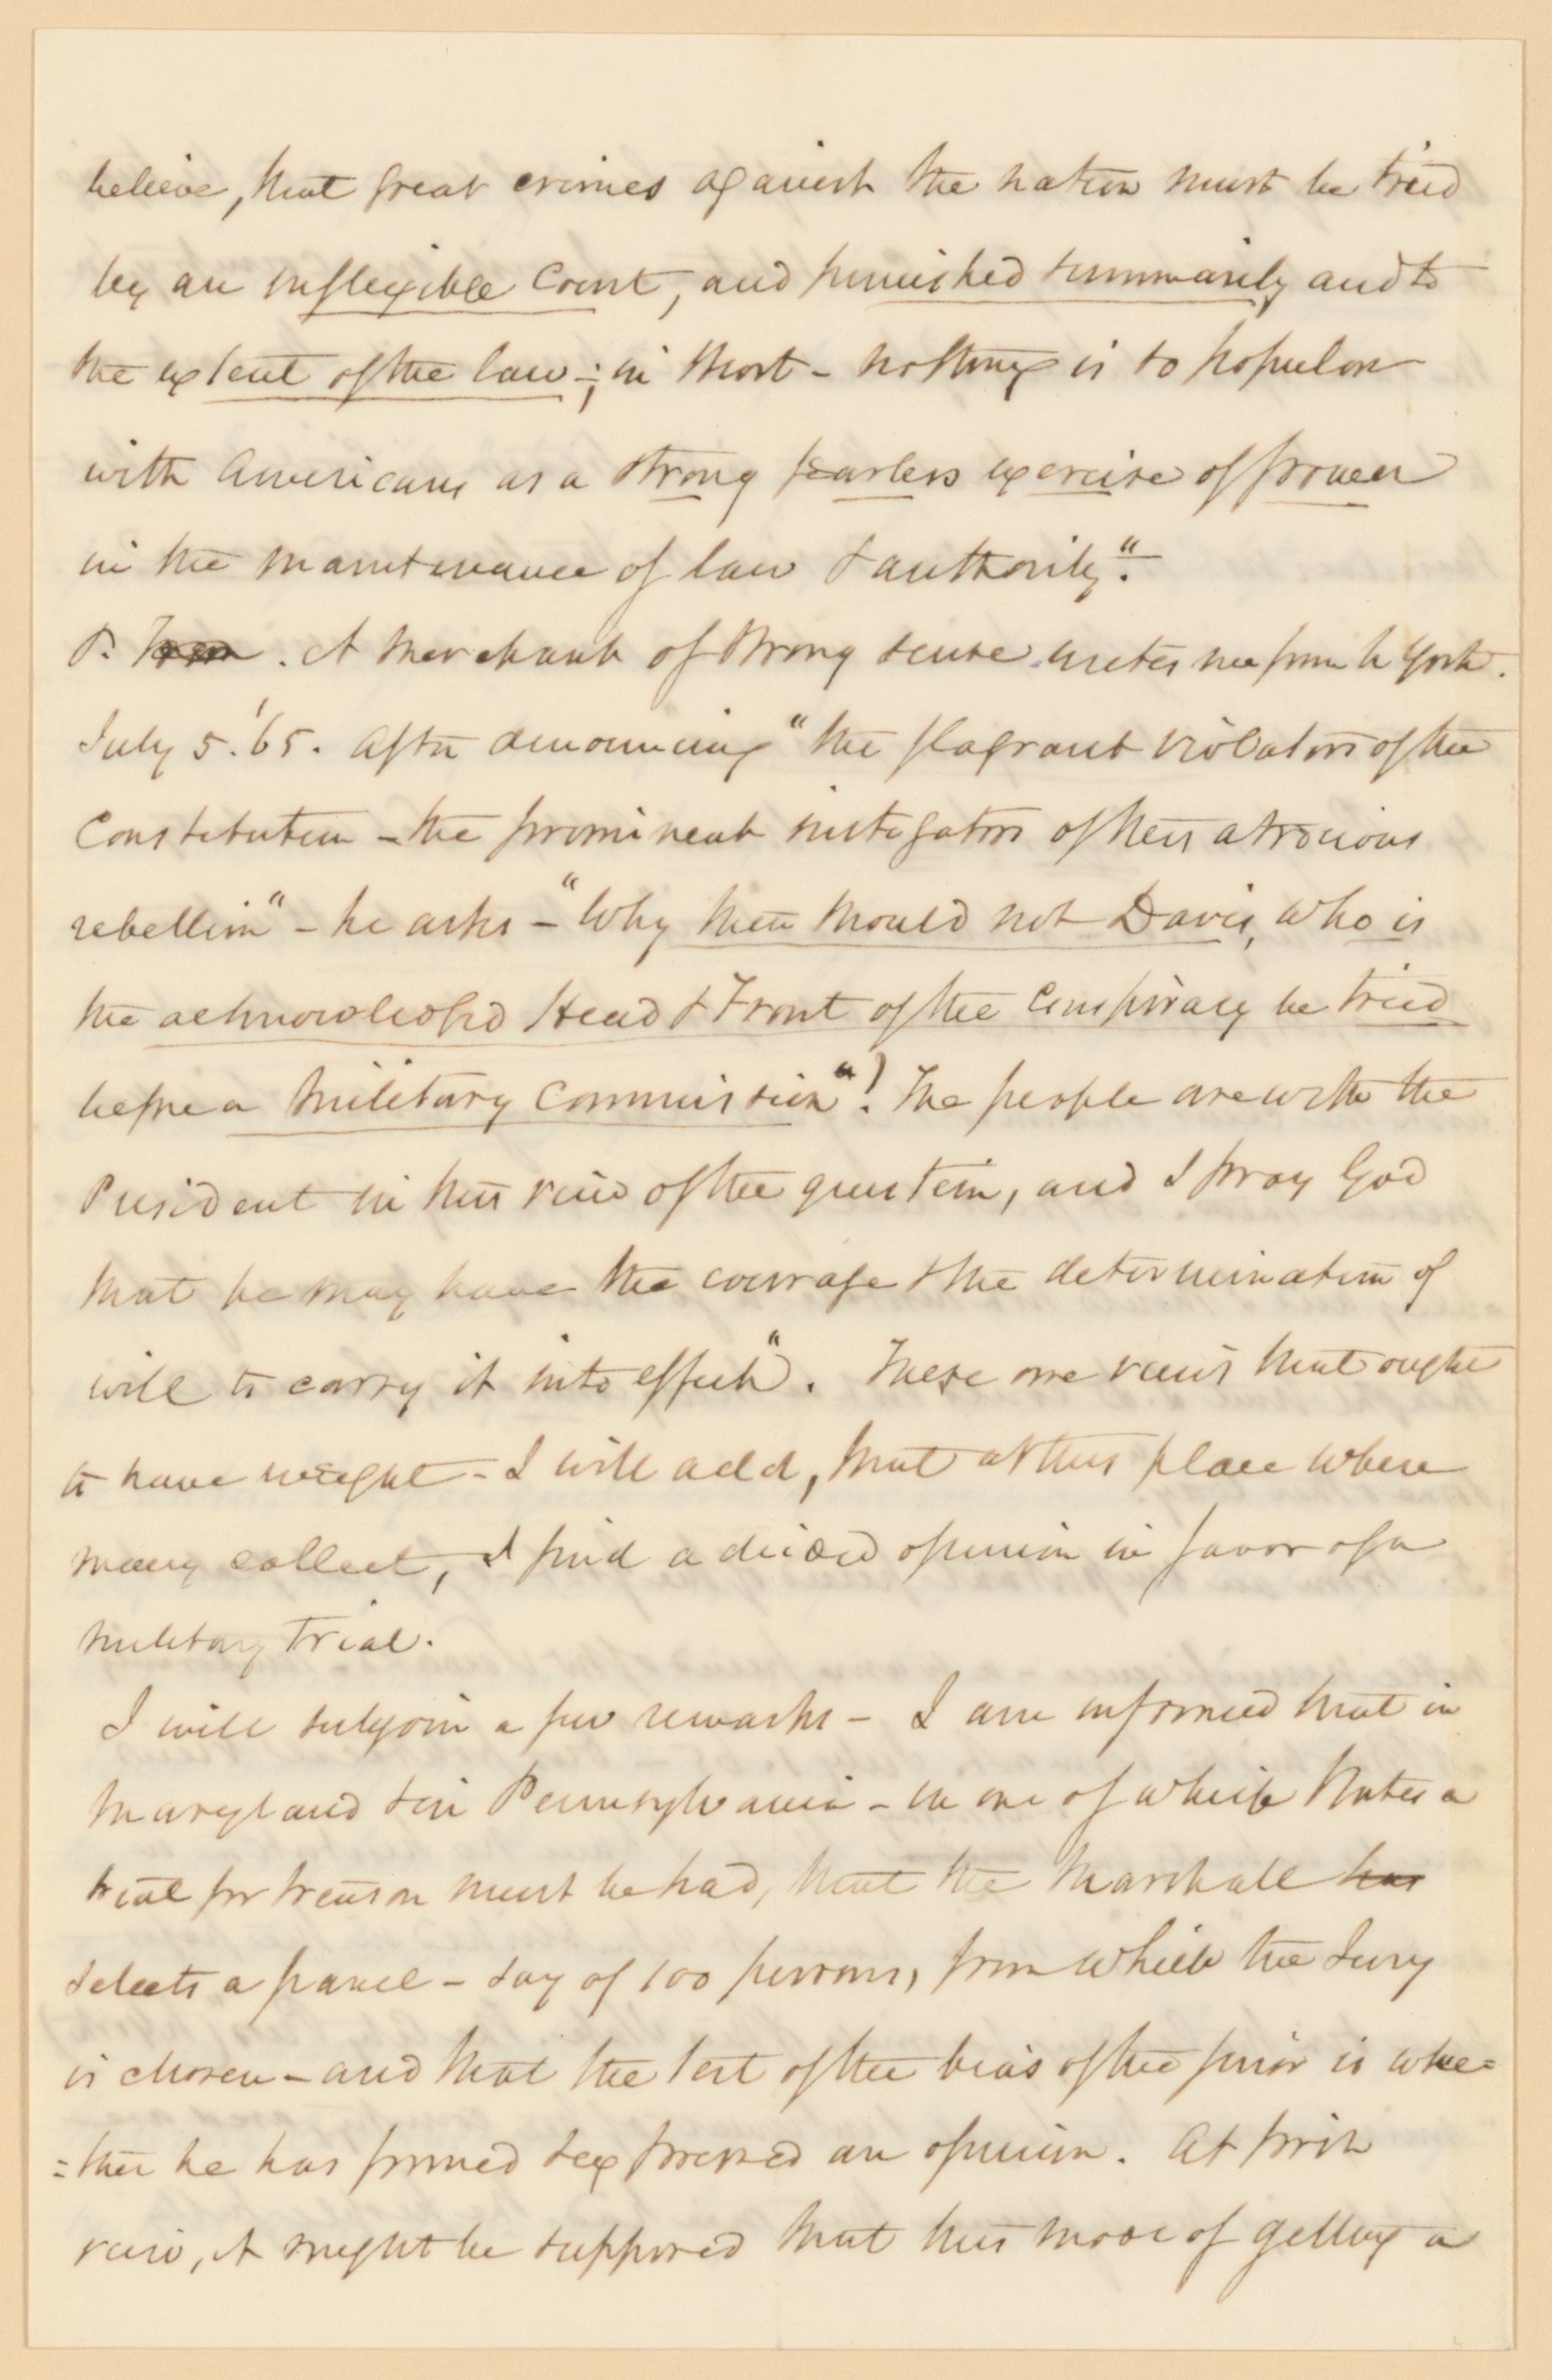 believe, that great crimes against the nation must be tried
by an inflexible Court, and punished summarily and to
the extent of the law-; in short - nothing is so popular
with Americans as a strong fearless exercise of power
in the maintenance of law & authority".
P. . A merchant of strong sense writes me from N York.
July 5. '65. After denouncing "the flagrant violators of the
Constitution - the prominent instigators of this atrocious
rebellion" - he asks - "Why then should not Davis, who is
the acknowledged Head & Front of the Conspiracy be tried
before a Military Commission"! The people are with the
President in this view of the question, and I pray God
that he may have the courage & the determination of
will to carry it into effect". These are views that ought
to have weight - I will add, that at this place where
many collect, I find a decided opinion in favor of a
military trial.
I will subjoin a few remarks - I am informed that in
Maryland & in Pennsylvania - in one of which States a
trial for treason must be had, that the Marshall has
selects a panel - say of 100 persons, from which the Jury
is chosen - and that the test of the bias of the juror is whe=
=ther he has formed & expressed an opinion. At first
view, it might be supposed that this mode of getting a